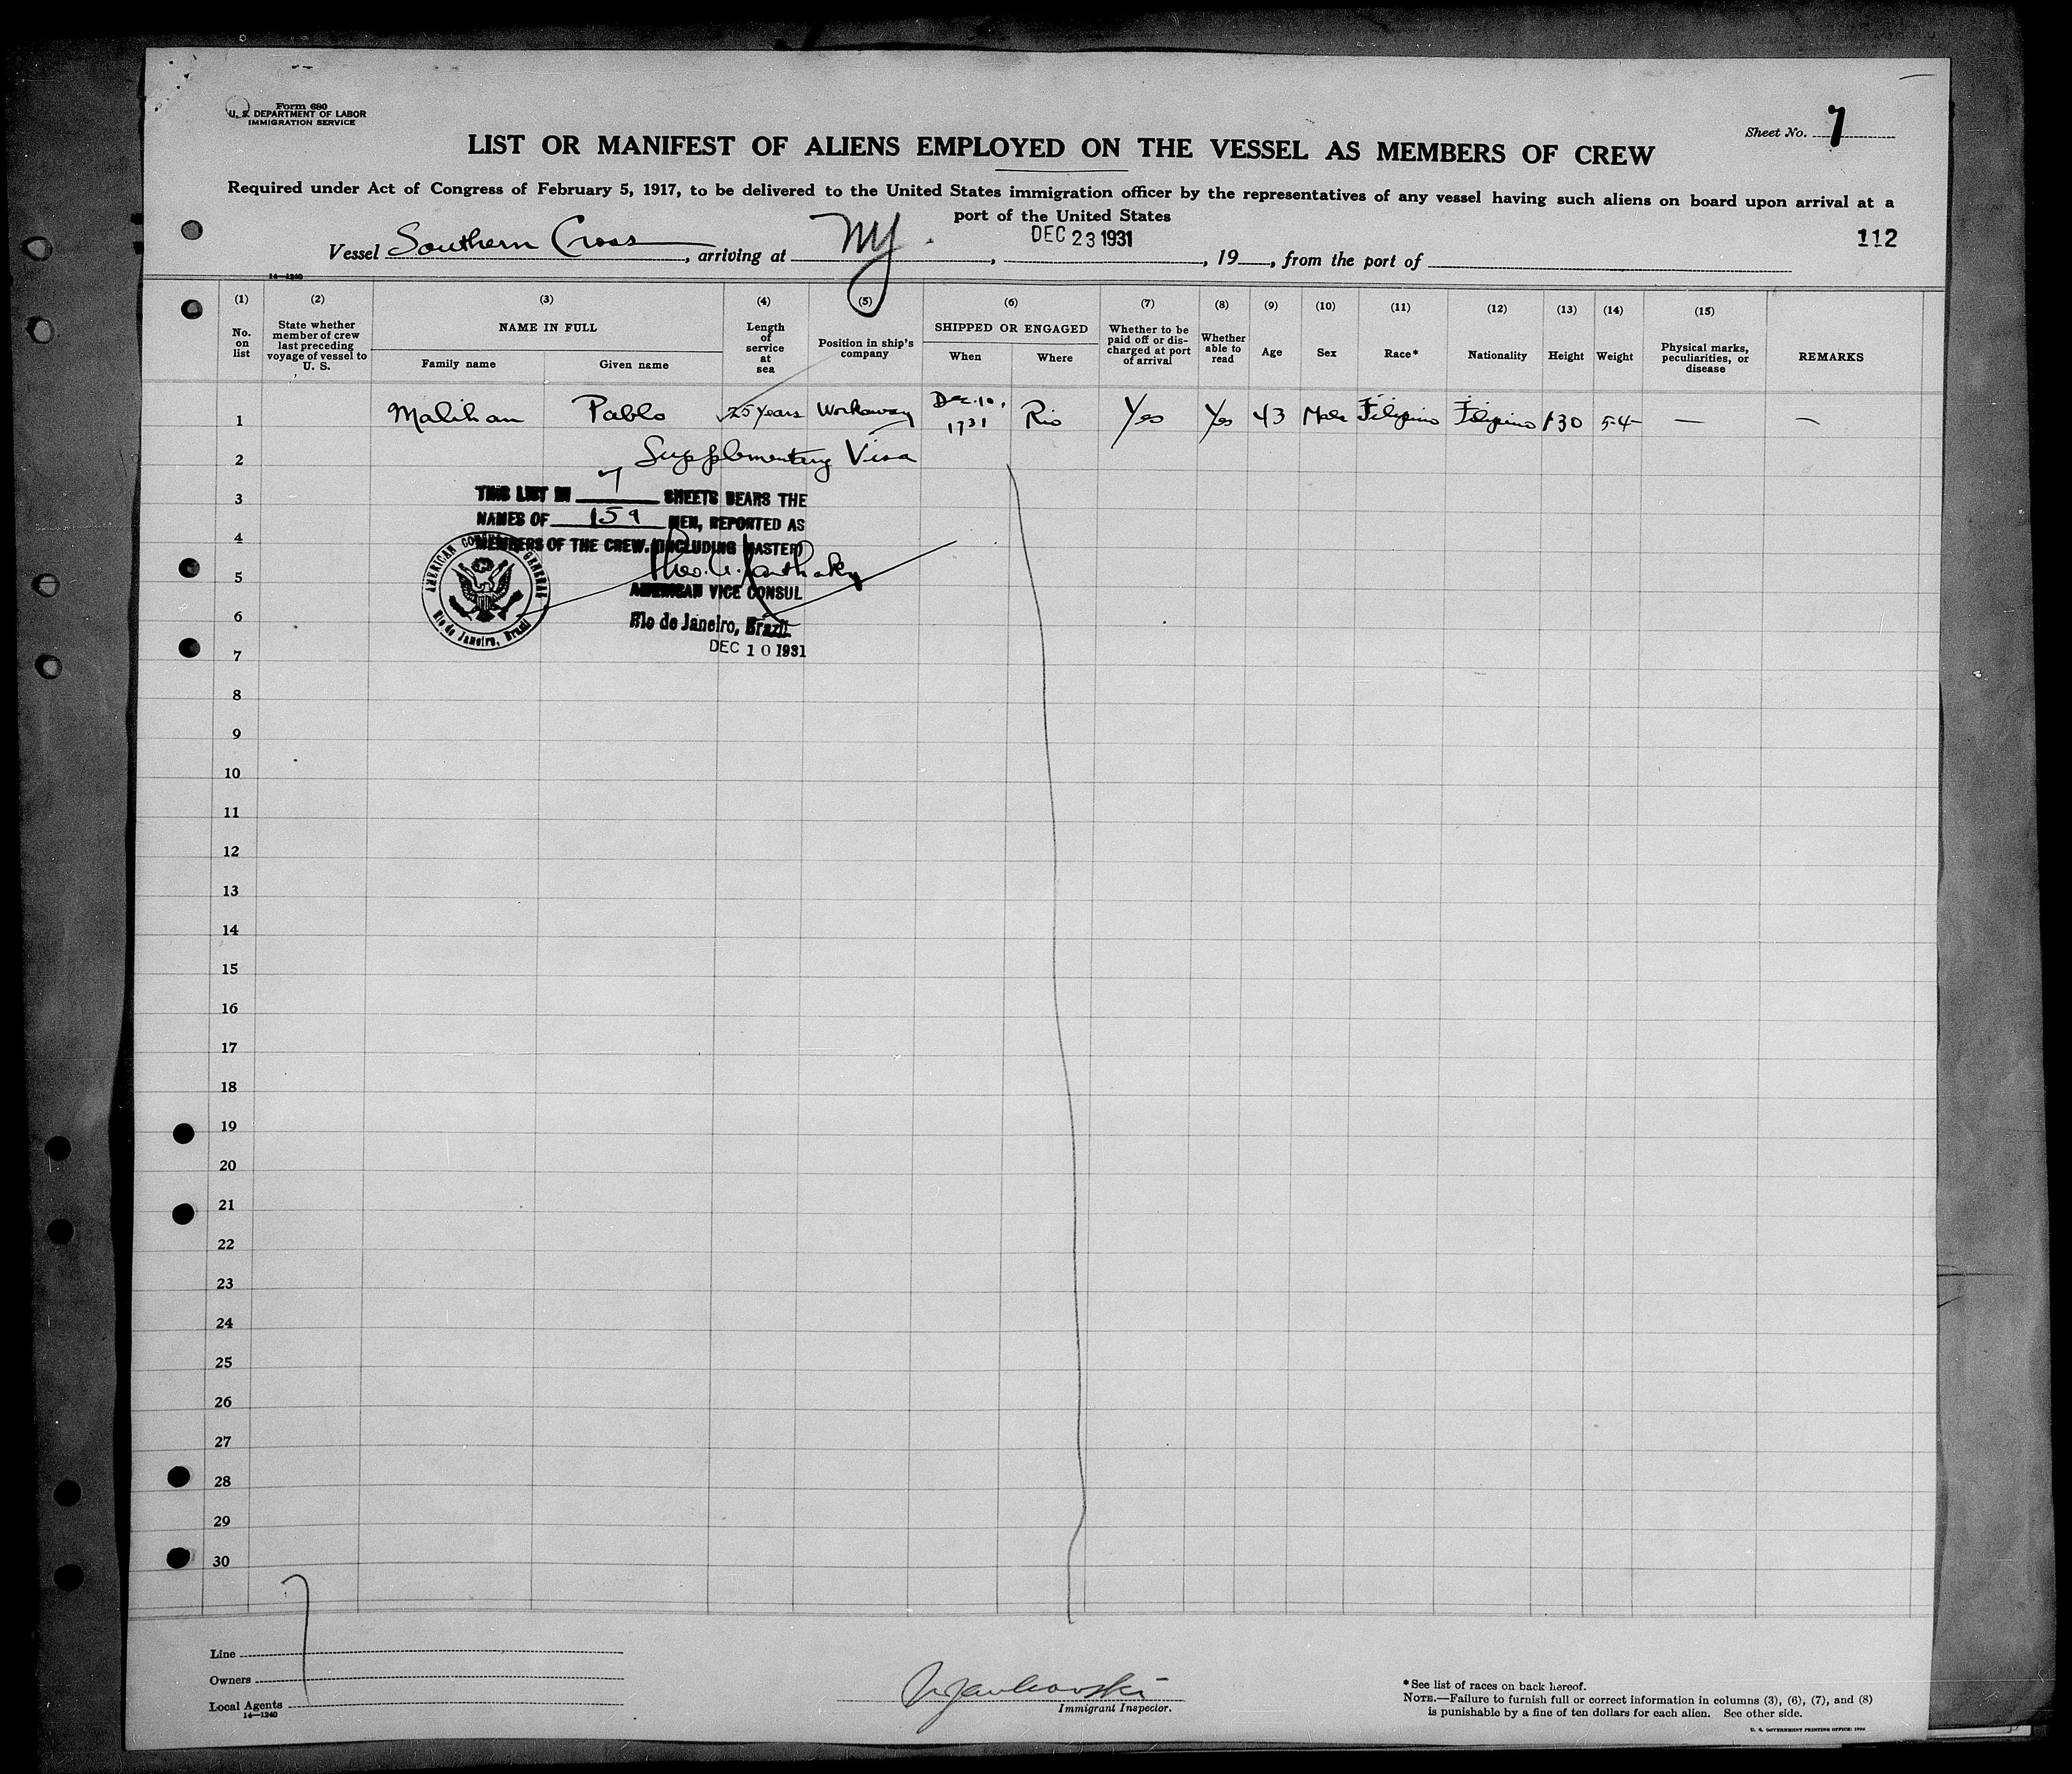 Form 680
U. S. DEPARTMENT OF LABOR
IMMIGRATION SERVICE
Sheet No. 7
LIST OR MANIFEST OF ALIENS EMPLOYED ON THE VESSEL AS MEMBERS OF CREW
Required under Act of Congress of February 5, 1917, to be delivered to the United States immigration officer by the representatives of any vessel having such aliens on board upon arrival at a
port of the United States
112
Vessel Southern Cross, arriving at NY., DEC 23 1931, 19__, from the port of
14—1240
(1) (2) (3) (4) (5) (6) (7) (8) (9) (10) (11) (12) (13) (14) (15)
No. on list
State whether member of crew last preceding voyage of vessel to U. S.
NAME IN FULL
Family name Given name
Length of service at sea
Position in ship's company
SHIPPED OR ENGAGED
When Where
Whether to be paid off or discharged at port of arrival
Whether able to read
Age
Sex
Race*
Nationality
Height
Weight
Physical marks, peculiarities, or disease
REMARKS
1 Malihan Pablo 25 years Workaway Dec. 10, 1931 Rio Yes Yes 43 Male Filipino Filipino 130 5-4 — —
2 Supplementary Visa
3
THIS LIST IN 7 SHEETS BEARS THE
NAMES OF 159 MEN, REPORTED AS
4
MEMBERS OF THE CREW. (INCLUDING MASTER)
AMERICAN CONSULATE GENERAL
Rio de Janeiro, Brasil
5
AMERICAN VICE CONSUL
6
Rio de Janeiro, Brazil.
DEC 10 1931
7
8
9
10
11
12
13
14
15
16
17
18
19
20
21
22
23
24
25
26
27
28
29
30
Line
Owners
Local Agents
14—1240
Immigrant Inspector.
*See list of races on back hereof.
NOTE.—Failure to furnish full or correct information in columns (3), (6), (7), and (8)
is punishable by a fine of ten dollars for each alien. See other side.